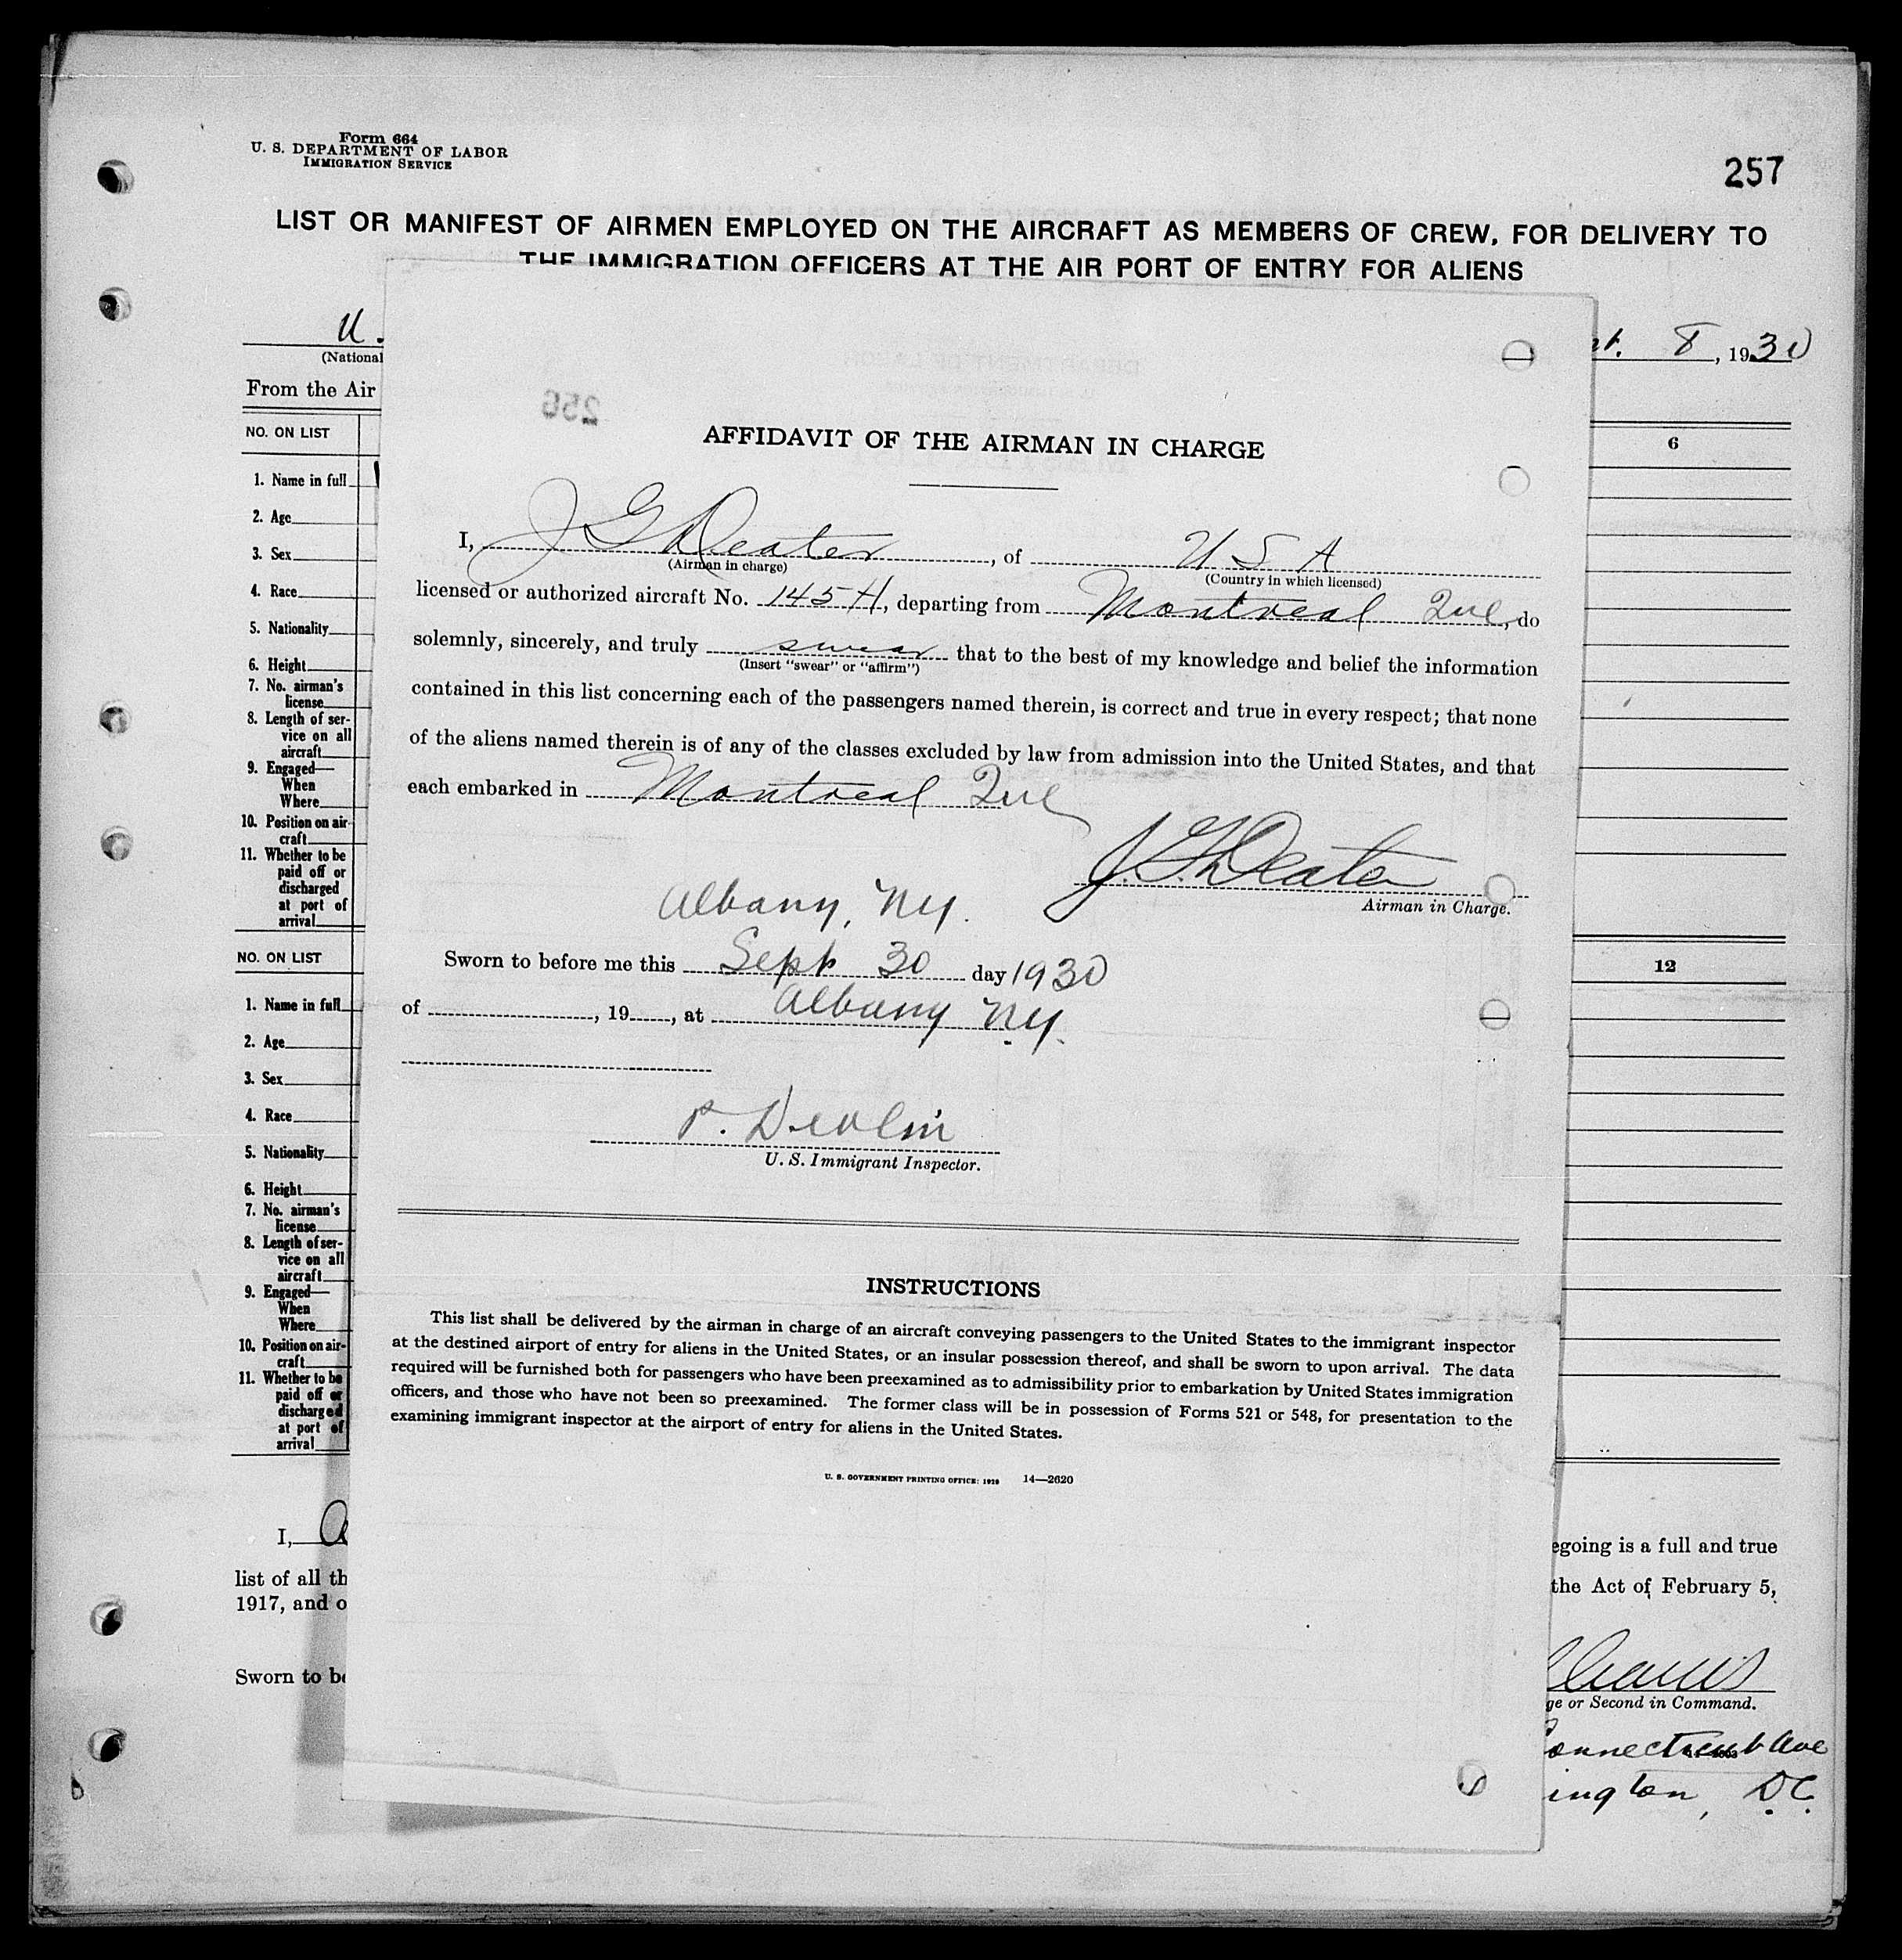 Form 664
U. S. DEPARTMENT OF LABOR
IMMIGRATION SERVICE
257
LIST OR MANIFEST OF AIRMEN EMPLOYED ON THE AIRCRAFT AS MEMBERS OF CREW, FOR DELIVERY TO
THE IMMIGRATION OFFICERS AT THE AIR PORT OF ENTRY FOR ALIENS
U.
(National
8, 1930
From the Air
NO. ON LIST
6
1. Name in full
2. Age
3. Sex
4. Race
5. Nationality
6. Height
7. No. airman's
license
8. Length of ser-
vice on all
aircraft
9. Engaged—
When
Where
10. Position on air-
craft
11. Whether to be
paid off or
discharged
at port of
arrival
NO. ON LIST
12
1. Name in full
2. Age
3. Sex
4. Race
5. Nationality
6. Height
7. No. airman's
license
8. Length of ser-
vice on all
aircraft
9. Engaged—
When
Where
10. Position on air-
craft
11. Whether to be
paid off or
discharged
at port of
arrival
I,
egoing is a full and true
list of all th
the Act of February 5,
1917, and o
Sworn to be
ge or Second in Command.
onnecticut Ave
ington, D.C.
256
AFFIDAVIT OF THE AIRMAN IN CHARGE
I, J G Deater, of U S A
(Airman in charge) (Country in which licensed)
licensed or authorized aircraft No. 145H, departing from Montreal Que, do
solemnly, sincerely, and truly swear that to the best of my knowledge and belief the information
(Insert "swear" or "affirm")
contained in this list concerning each of the passengers named therein, is correct and true in every respect; that none
of the aliens named therein is of any of the classes excluded by law from admission into the United States, and that
each embarked in Montreal Que
J. G. Deater
Airman in Charge.
Albany, N.Y.
Sworn to before me this Sept 30 day 1930
of , 19 , at Albany N.Y.
P. Devlin
U. S. Immigrant Inspector.
INSTRUCTIONS
This list shall be delivered by the airman in charge of an aircraft conveying passengers to the United States to the immigrant inspector
at the destined airport of entry for aliens in the United States, or an insular possession thereof, and shall be sworn to upon arrival. The data
required will be furnished both for passengers who have been preexamined as to admissibility prior to embarkation by United States immigration
officers, and those who have not been so preexamined. The former class will be in possession of Forms 521 or 548, for presentation to the
examining immigrant inspector at the airport of entry for aliens in the United States.
U. S. GOVERNMENT PRINTING OFFICE: 1928 14—2620